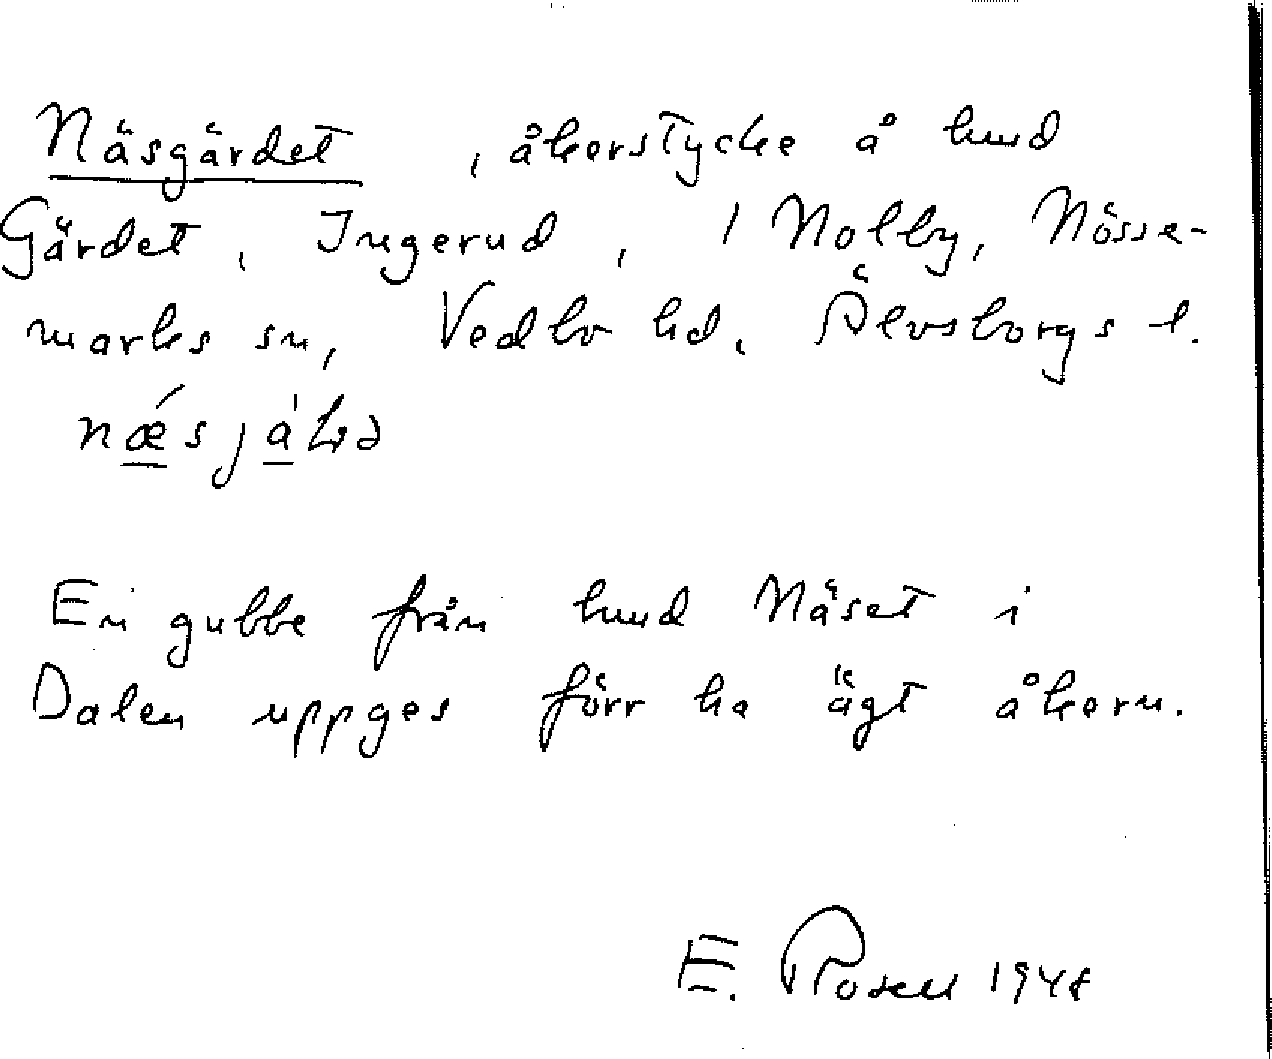 Näsgärdet, åkerstycke å hmd
Gärdet, Ingerud, 1 Nolby, Nösse-
marks sn, Vedbo hd, Älvsborgs l.
En gubbe från hmd Näset i
Dalen uppges förr ha ägt åkern.
E. Rosell 1948